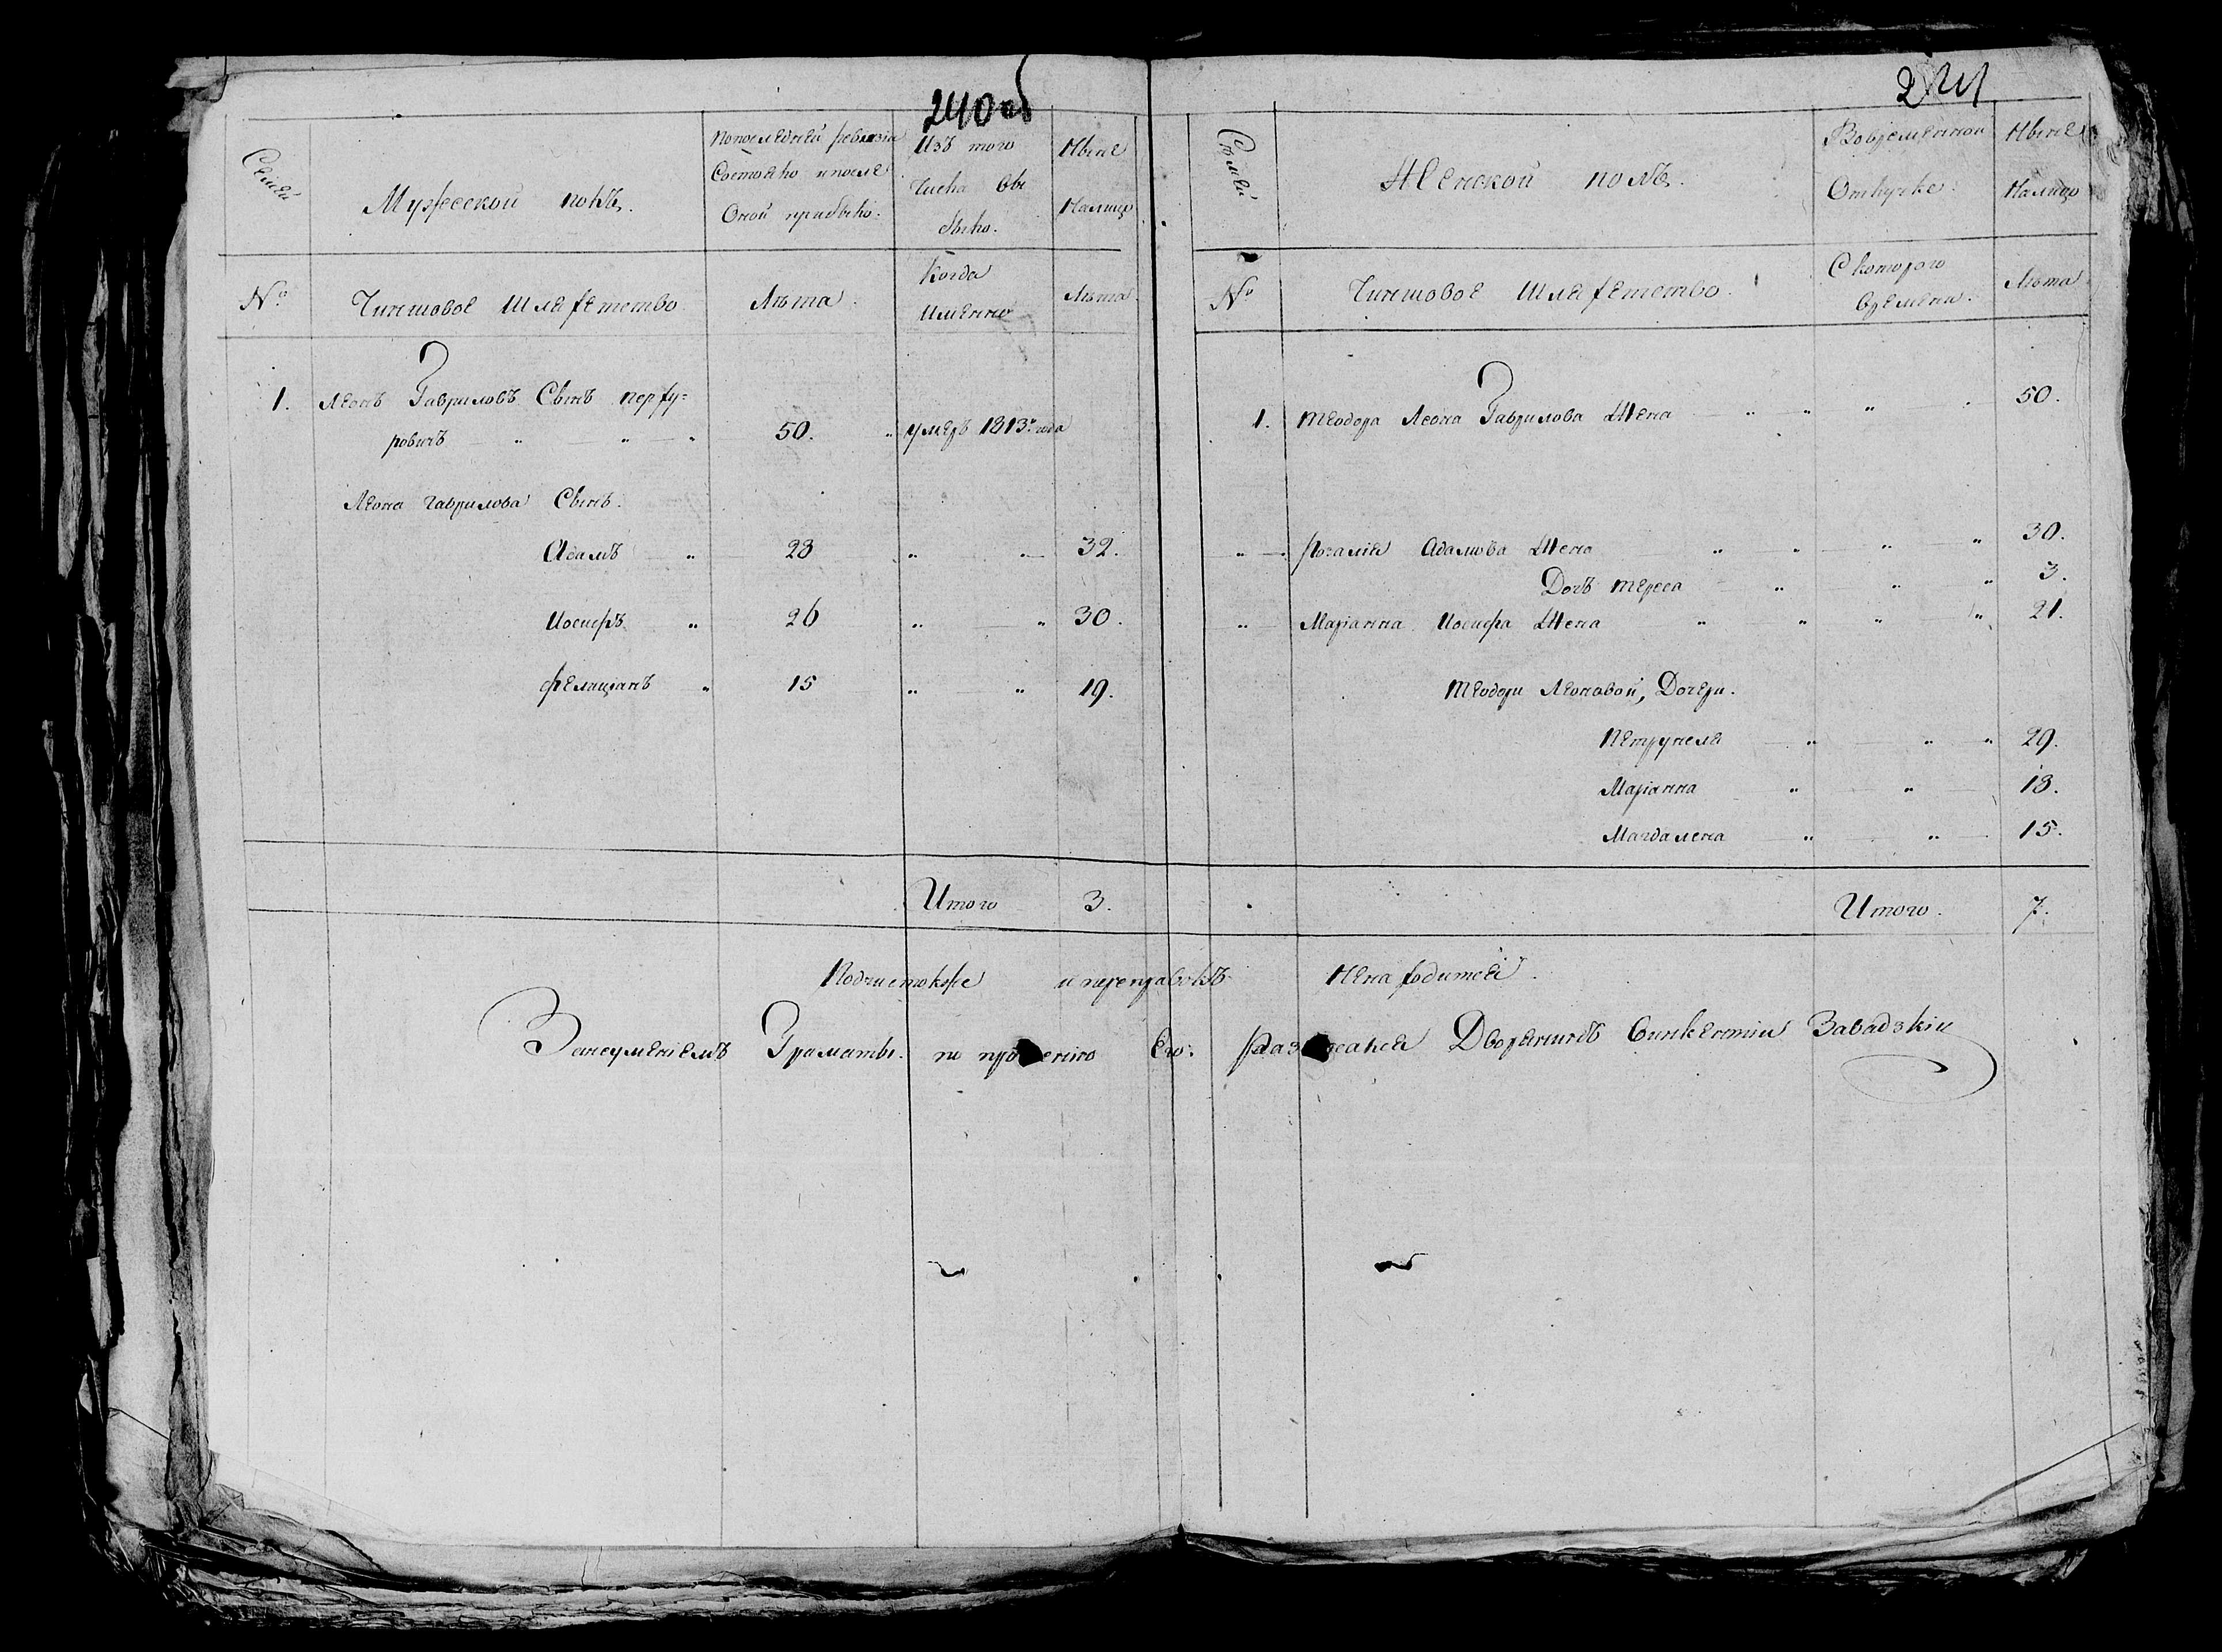 240 об
Семей
Мужеской полъ.
Попоследней ревизiи
Состояло ипосле
Оной прибыло.
Изъ того
Числа вы
было.
Ныне
Налицо
№
Чиншовое Шляхетство
Лѣта.
Когда
имянно
Лѣта.
1. Леонъ Гавриловъ Сынъ перху=
ровичъ " " " 50. " умеръ 1813го года
Леона гаврилова Сынъ.
Адамъ " 28 " " 32.
Иосифъ " 26 " " 30.
фелицiанъ " 15 " " 19.
Итого 3.
241
Семей
Женской полъ.
Вовременной
Отлучке.
Ныне
Налицо
№
Чиншовое Шляхетство.
С которого
времени.
Лѣта
1. теодора Леона Гаврилова Жена " " " 50.
" розалiя Адамова Жена " " " " 30.
Дочь тереса " " " 3.
" Марiанна Иосифа Жена " " " " 21.
теодори Леоновой, Дочери.
Петрунеля " " " 29.
Марiанна " " 18.
Магдалена " " 15.
Итого. 7.
Подчистокже ипереправокъ Ненаходитсе.
Занеуменiемъ Граматы. по прошенiю Его: Дворянинъ Викентiи Завадзкiи